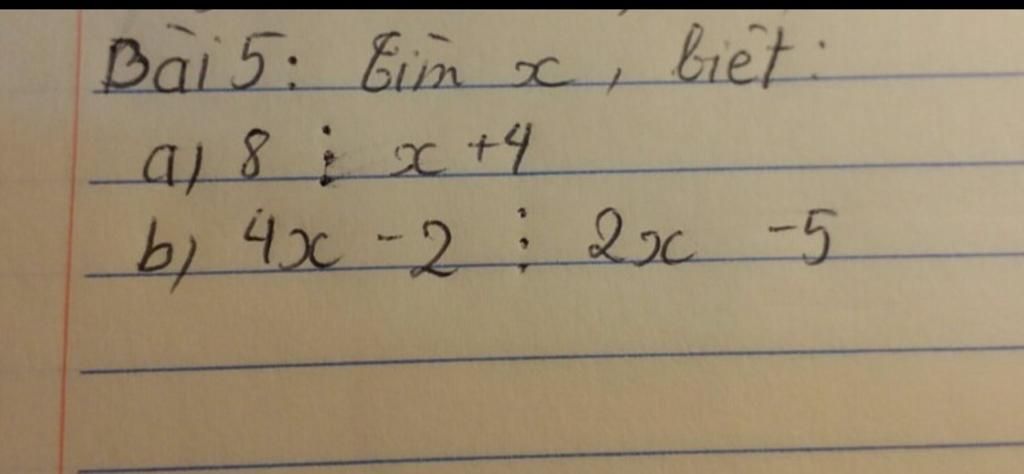 Bài 5: Tìm x, biết:
a) 8 ⋮ x +4
b) 4x - 2 ⋮ 2x - 5